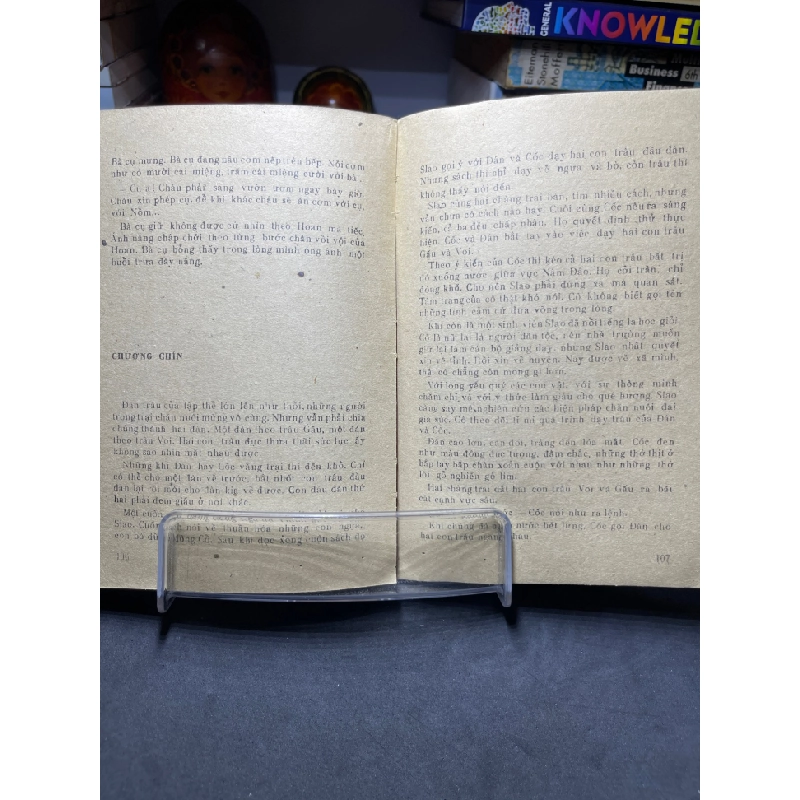 GENERAL
KNOWLED
Business 6th
Finance
Bà cụ mừng. Bà cụ đang nấu cơm nếp trên bếp. Nồi cơm
như có mười cái miệng, trăm cái miệng cười với bà.
Cháu phải sang vườn ươm ngay bây giờ.
Cháu xin phép cụ, để khi khác cháu sẽ ăn cơm với cụ,
với Nồm...
Bà cụ giữ không được cứ nhìn theo Hoan mà tiếc.
Ánh nắng chấp chới theo từng bước chân vội vội của
Hoan. Bà cụ bỗng thấy trong lòng mình ong ánh một
buổi đầy nắng.
CHƯƠNG CHÍN
Đàn trâu của tập thể lớn lên như thổi, những người
trong trại chăn nuôi mừng vô cùng. Nhưng vẫn phải chia
chúng thành hai đàn. Một đàn theo trâu Gấu, một đàn
theo trâu Voi. Hai con trâu đực thừa tuổi sức lực ấy
không sao nhìn mặt nhau được.
Những khi Đán hay Cốc vắng trại thì đến khổ. Chỉ
có thể cho một đàn về trước, bắt nhốt con trâu đầu
đàn lại rồi mới cho đàn kia về được. Con đầu đàn thứ
hai phải đem giấu ở nơi khác.
Một cuốn
Slao. Cuốn sách nói về thuần hóa những con ngựa
Sau khi đọc xong cuốn sách đó
106
Slao gợi ý với Đán và Cốc dạy hai con trâu đầu đàn.
Nhưng sách thì chỉ dạy về ngựa và bò, còn trâu thì
không thấy nói đến.
Slao cùng hai chàng trai bàn, tìm nhiều cách, nhưng
vẫn chưa có cách nào hay. Cuối cùng Cốc nêu ra sáng
kiến, cả ba đều chấp nhận. Họ quyết định thử thực
hiện. Cốc và Đán bắt tay vào việc dạy hai con trâu
Gấu và Voi.
Theo ý kiến của Cốc thì kéo ra hai con trâu bất trị
có xuống nước giữa vực Nặm Đáo. Họ cởi trần, chỉ
đóng khố. Cho nên Slao phải đứng xa mà quan sát.
Tâm trạng của cô thật khó nói. Cô không biết gọi tên
những tình cảm cứ đưa võng trong lòng.
Khi còn là một sinh viên Slao đã nổi tiếng là học giỏi.
Cô là nữ lại là người dân tộc, nên nhà trường muốn
giữ lại làm cán bộ giảng dạy, nhưng Slao nhất quyết
xin về tỉnh. Rồi xin về huyện. Nay được về xã mình,
thật cô chẳng còn mong gì hơn.
Với lòng yêu quý các con vật, với sự thông minh
chăm chỉ, và với ý thức làm giàu cho quê hương, Slao
cặm say mê nghiên cứu các biện pháp chăn nuôi đại
gia súc. Cô theo dõi tỉ mỉ quá trình dạy trâu của Đán
và Cốc.
Đán cao lớn, cân đối, trắng đến lóa mắt. Cốc đen
như mẫu đồng đúc tượng, đậm chắc, những thớ thịt ở
bắp tay bắp chân xoắn cuộn với nhau như những thớ
lõi gỗ nghiến gỗ lim.
Hai chàng trai cài hai con trâu Voi và Gấu ra bãi
cát cạnh vực sâu.
Cốc nói như ra lệnh.
Cốc gọi Đán cho
hai con trâu
107